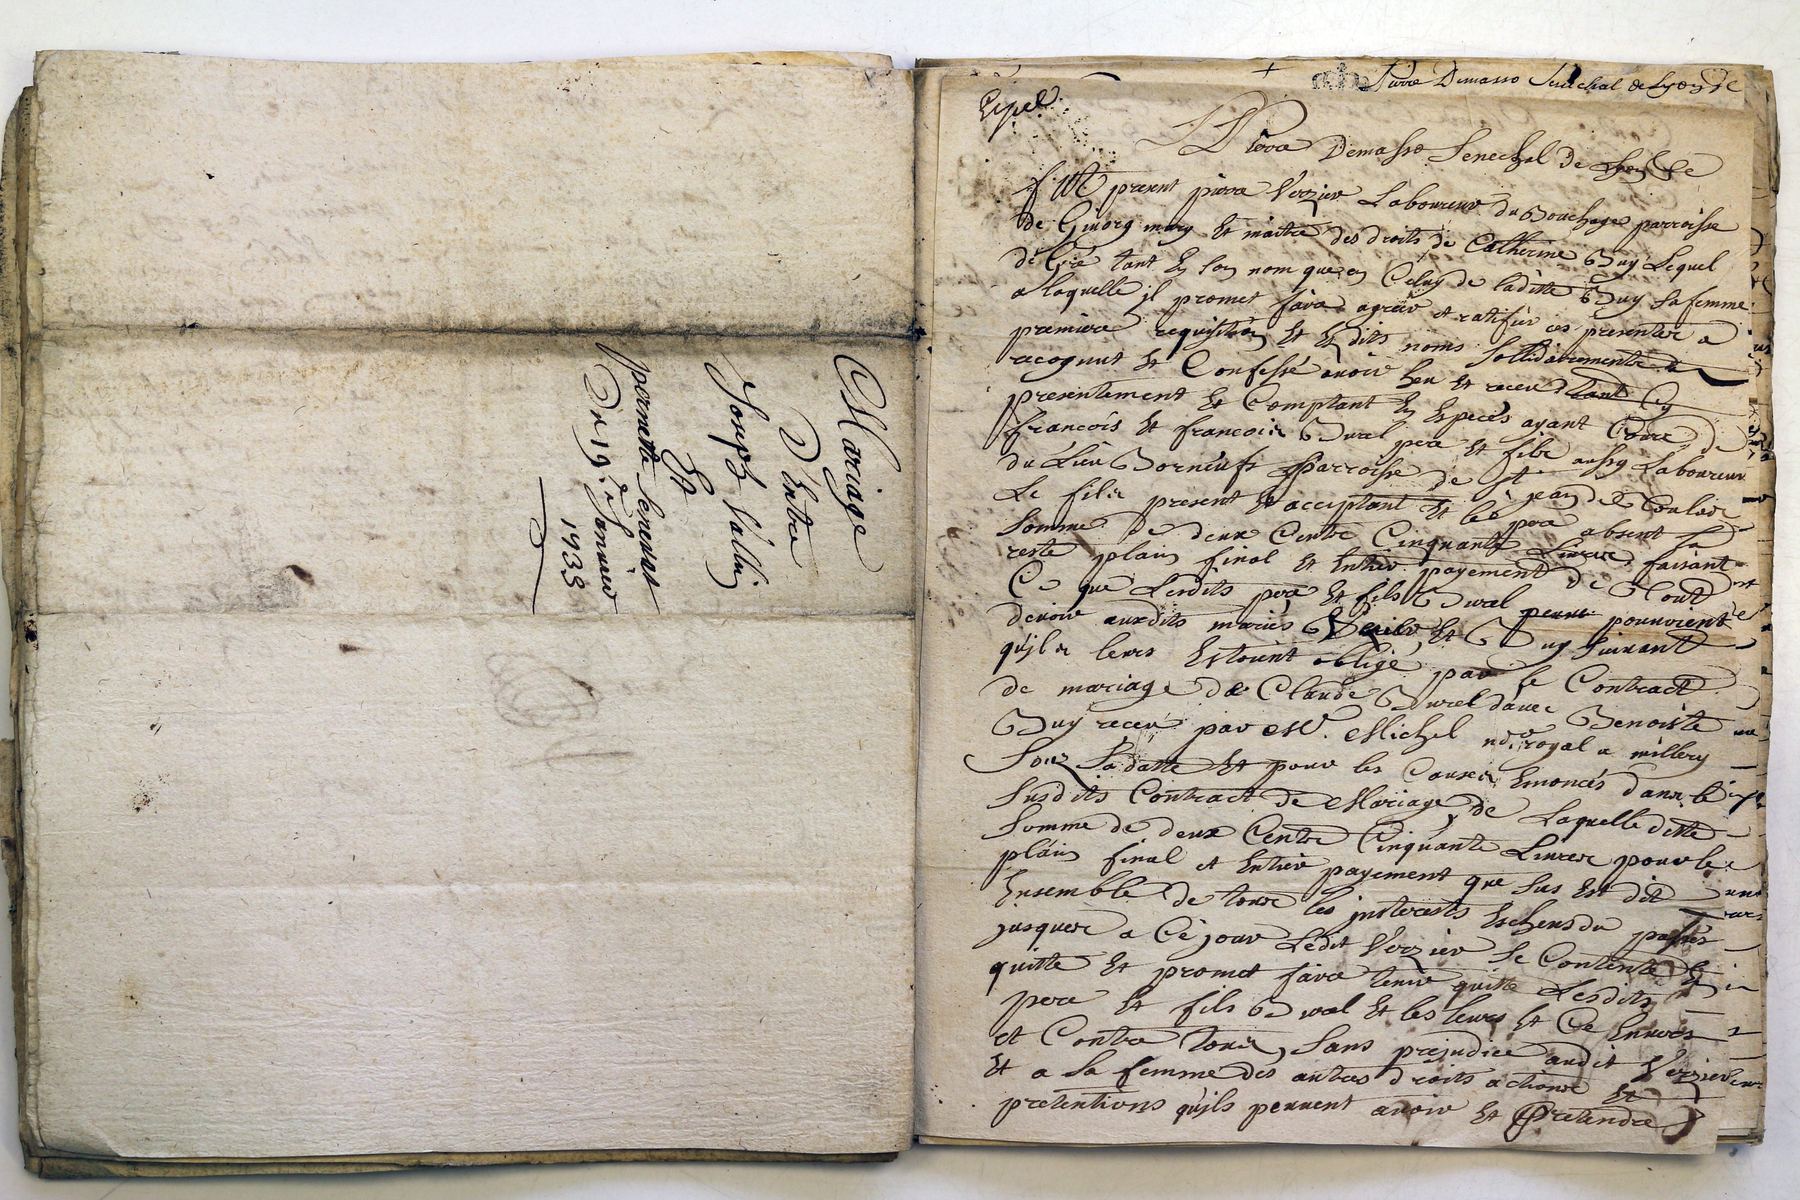 Mariage
D'Entre
Joseph Gallin
Et
pernette Seneval
Du 19e Janvier
1738
Pierre Demasso Senechal de Lyon
Expé
Pierre Demasso Senechal de Lyon
fut present pierre Verzier Laboureur du Bouchage parroisse
de mary Et maitre des droits de Catherine Buy Lequel
de Gré tant En son nom que en Celuy de laditte Buy sa femme
a laquelle il promet faire agreer et ratifier ces presentes a
premiere requisition Et Es dits noms sollidairement
recognut Et Confessé avoir heu et receu tant Cy
presentement Et Comptant En Especes ayant Cours de
francois Et francois Bural pere Et fils aussy Laboureurs
du Lieu Borneuf parroisse de St jean de
Le fils present Et acceptant Et le pere absent La
somme de deux Cents Cinquante Livres faisant
reste plain final Et Entier payement de tout
Ce que Lesdits pere Et fils Bural pouvoient
devoir auxdits mariés Verzier Et Buy suivant
qu'ils leurs Estoint obligé par le Contract
de mariage de Claude Bural avec Benoiste
Buy receu par Me. Michel nore royal a millery
Souz sa datte Et pour les Causes Enoncés dans le
susdits Contract de Mariage, de Laquelle ditte
somme de deux Cents Cinquante Livres pour le
plain final et Entier payement que sus Est dit
Ensemble de tous les interests Escheus du passés
jusques a Ce jour Ledit Verzier se Contente Et
quitte Et promet faire tenir quitte Lesdits
pere Et fils Bural Et les leurs Et Ce Envers
et Contre tous, sans prejudice audit Verzier
Et a sa femme des autres droits actions Et
pretentions qu'ils peuvent avoir Et Pretendre